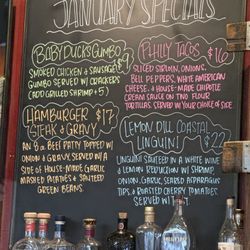 JANUARY SPECIALS
BABY DUCKS GUMBO
SMOKED CHICKEN & SAUSAGE
GUMBO SERVED W/ CRACKERS
(ADD GRILLED SHRIMP +5)
PHILLY TACOS $16
SLICED SIRLOIN, ONIONS,
BELL PEPPERS, WHITE AMERICAN
CHEESE, & HOUSE-MADE CHIPOTLE
CREAM SAUCE ON TWO FLOUR
TORTILLAS. SERVED W/ YOUR CHOICE OF SIDE
HAMBURGER $17
STEAK & GRAVY
AN 8 oz BEEF PATTY TOPPED W/
ONION & GRAVY. SERVED W/ A
SIDE OF HOUSE-MADE GARLIC
MASHED POTATOES & SAUTEED
GREEN BEANS.
LEMON DILL COASTAL
LINGUINI $22
LINGUINI SAUTEED IN A WHITE WINE
& LEMON REDUCTION W/ SHRIMP,
ONION, GARLIC, SEARED ASPARAGUS
TIPS, & ROASTED CHERRY TOMATOES.
SERVED W/ TOAST